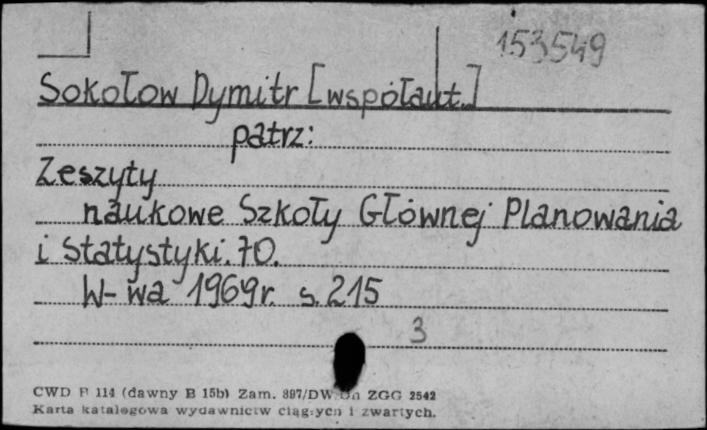 153549
Sokołow Dymitr [współaut.]
patrz:
Zeszyty
naukowe Szkoły Głównej Planowania
i Statystyki. 70.
W-wa 1969 r. s. 215
3
CWD B 114 (dawny B 15b) Zam. 897/DW ZGG 2542
Karta katalogowa wydawnictw ciągłych i zwartych.